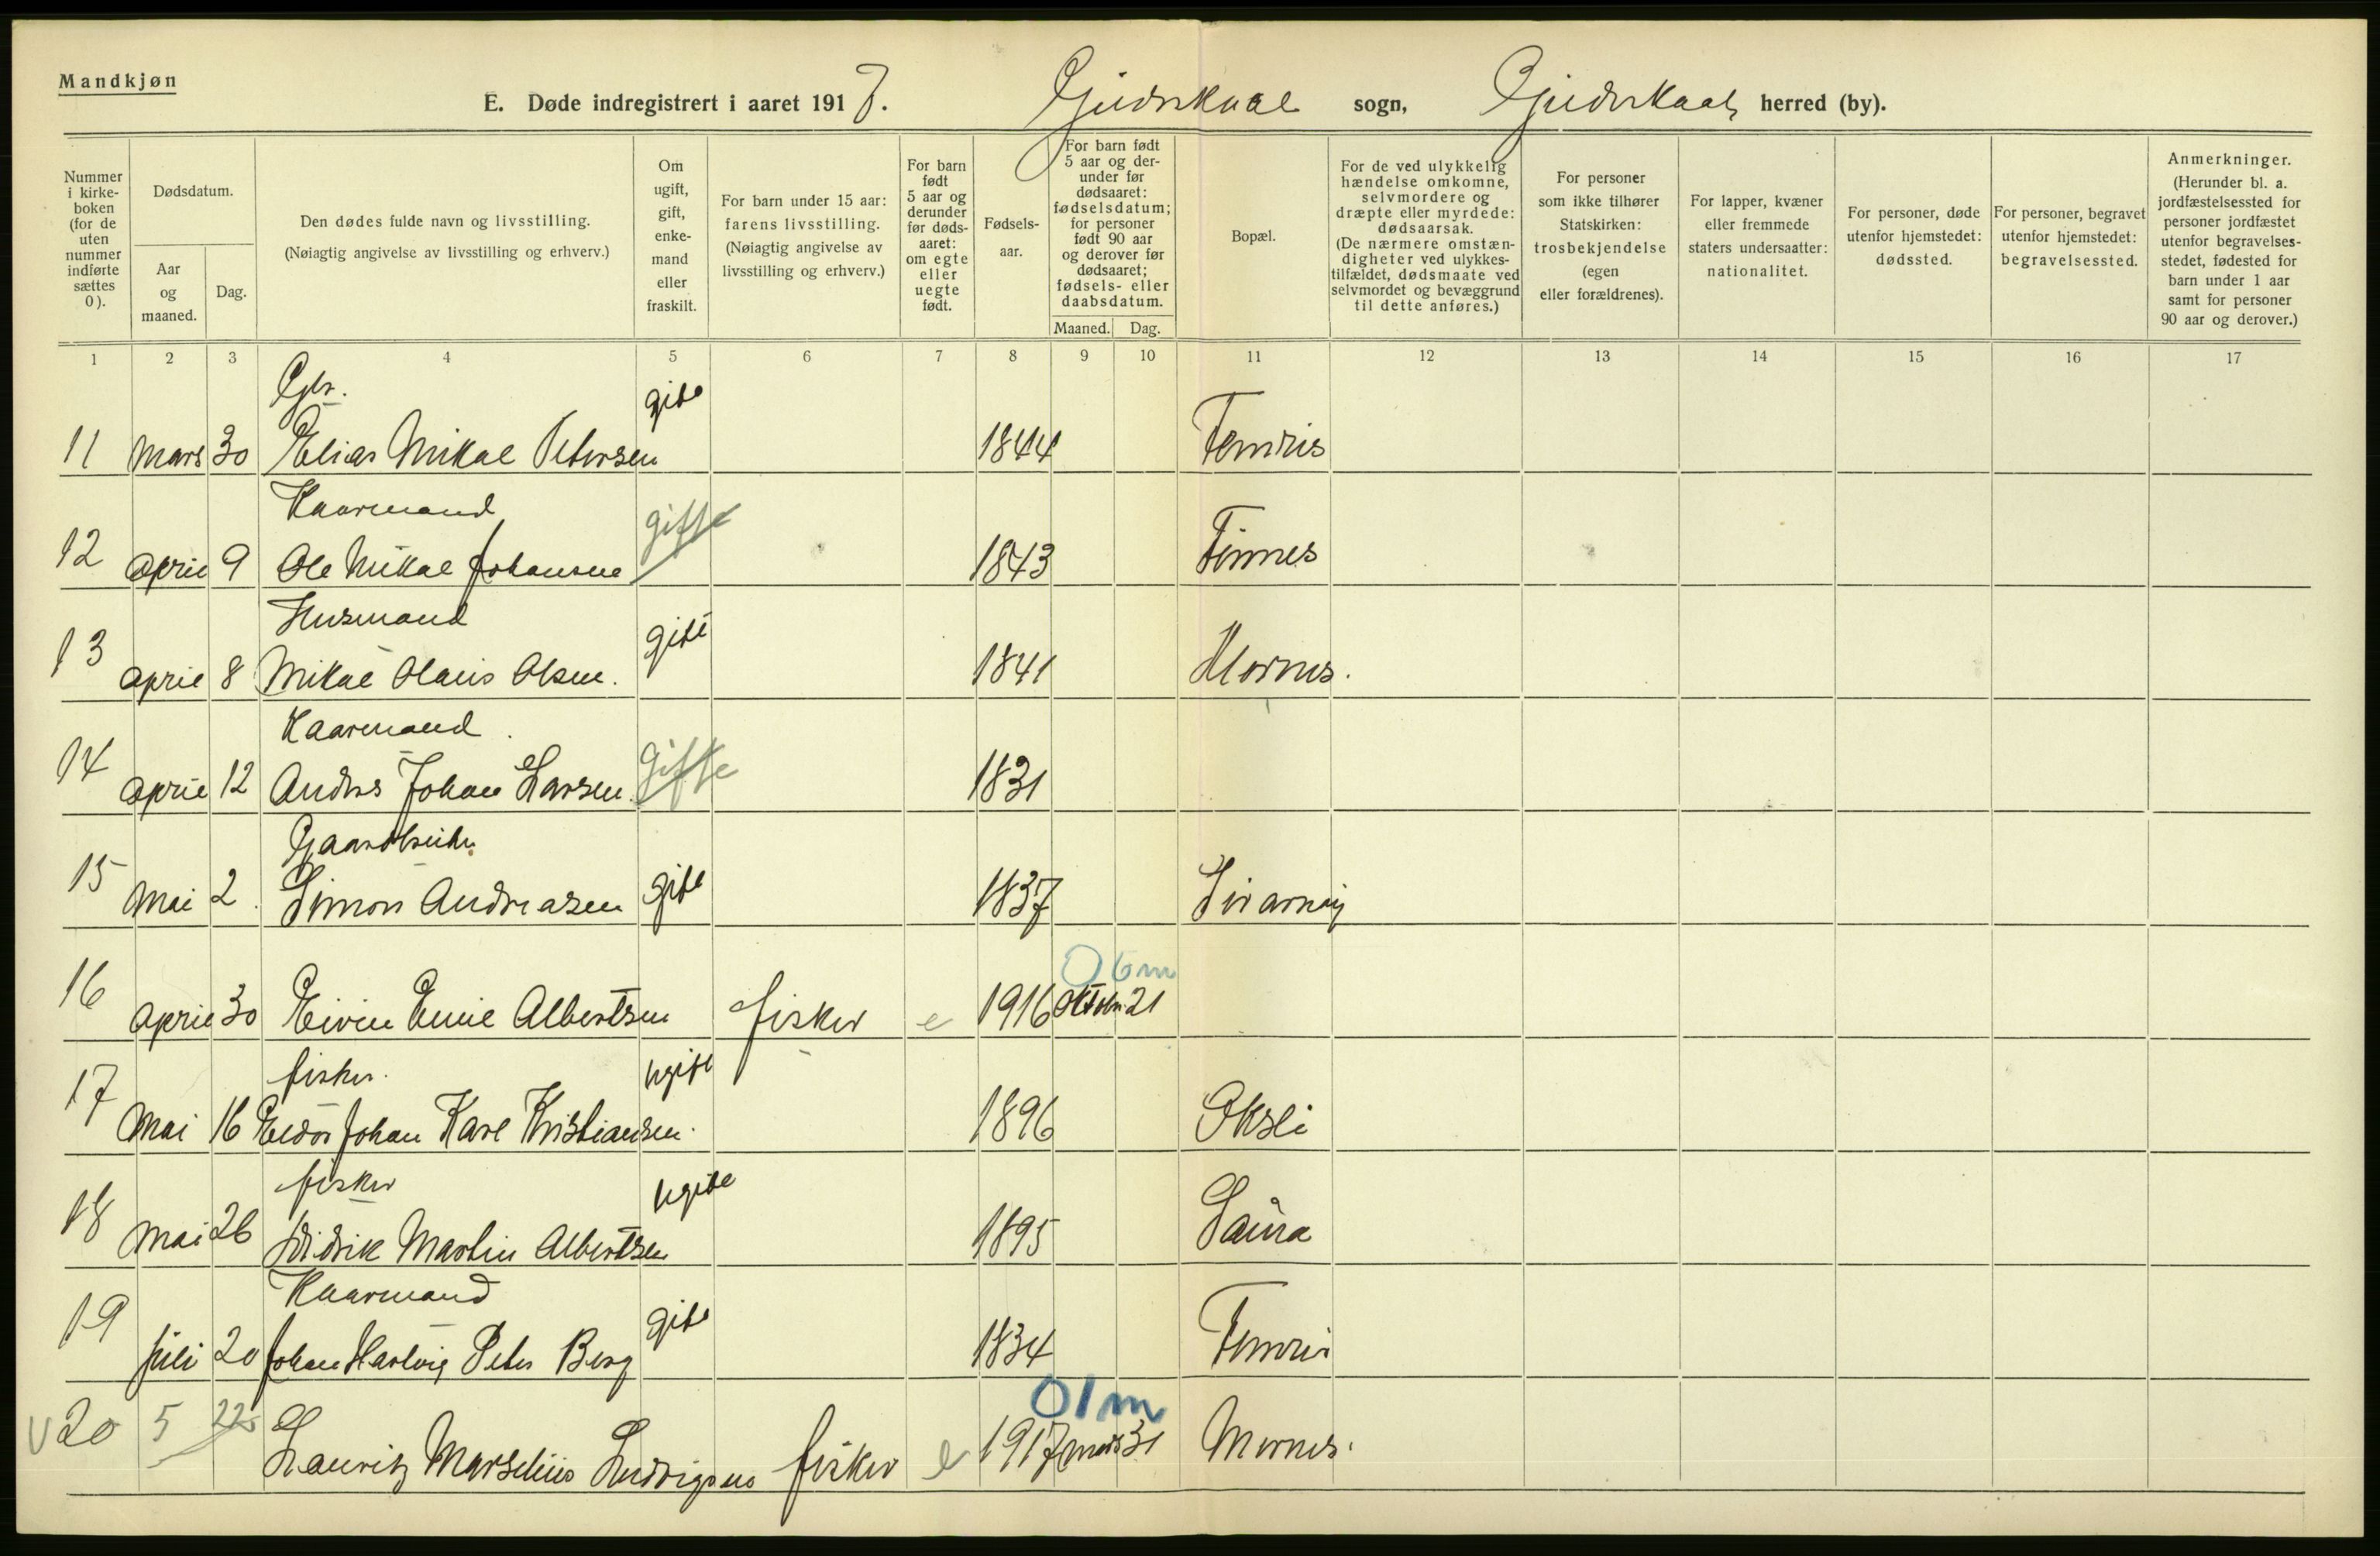 Mandkjøn
E. Døde indregistrert i aaret 1917. Gjidskaal sogn, Gjidskaal herred (by).
Nummer i kirkeboken (for de uten nummer indførte sættes 0).
Dødsdatum.
Aar og maaned.
Dag.
Den dødes fulde navn og livsstilling.
(Nøiagtig angivelse av livsstilling og erhverv.)
Om ugift, gift, enkemand eller fraskilt.
For barn under 15 aar: farens livsstilling. (Nøiagtig angivelse av livsstilling og erhverv.)
For barn født 5 aar og derunder før dødsaaret: om egte eller uegte født.
Fødselsaar.
For barn født 5 aar og derunder før dødsaaret: fødselsdatum; for personer født 90 aar og derover før dødsaaret; fødsels- eller daabsdatum.
Maaned. Dag.
Bopæl.
For de ved ulykkelig hændelse omkomne, selvmordere og dræpte eller myrdede: dødsaarsak. (De nærmere omstændigheter ved ulykkestilfældet, dødsmaate ved selvmordet og bevæggrund til dette anføres.)
For personer som ikke tilhører Statskirken: trosbekjendelse (egen eller forældrenes).
For lapper, kvæner eller fremmede staters undersaatter: nationalitet.
For personer, døde utenfor hjemstedet: dødssted.
For personer, begravet utenfor hjemstedet: begravelsessted.
Anmerkninger. (Herunder bl. a. jordfæstelsessted for personer jordfæstet utenfor begravelsesstedet, fødested for barn under 1 aar samt for personer 90 aar og derover.)
1 2 3 4 5 6 7 8 9 10 11 12 13 14 15 16 17
Gbr. gift
11 Mars 30 Elias Mikal Petersen 1844 Femris
Kaarmand gift
12 April 9 Ole Mikal Johansen 1843 Finnes
Husmand gift
13 April 8 Mikal Olaus Olsen. 1841 Mornes.
Kaarmand. gift
14 April 12 Anders Johan Larsen 1831
Gaardbruker
15 Mai 2 Simon Andreasen gift 1837
0 6 m
16 April 30 Eivin Emil Albertsen fisker e 1916 Oktober 21
fisker. ugift
17 Mai 16 Eidor Johan Karl Kristiansen. 1896 Oksli
fisker ugift
18 Mai 26 Didrik Martin Albertsen 1895 Saura
Kaarmand gift
19 Juli 20 Johan Hartvig Peter Berg 1834 Femris
0 1 m
v 20 5 22 Lauritz Marselius Ludvigsen fisker e 1917 mars 31 Mornes.